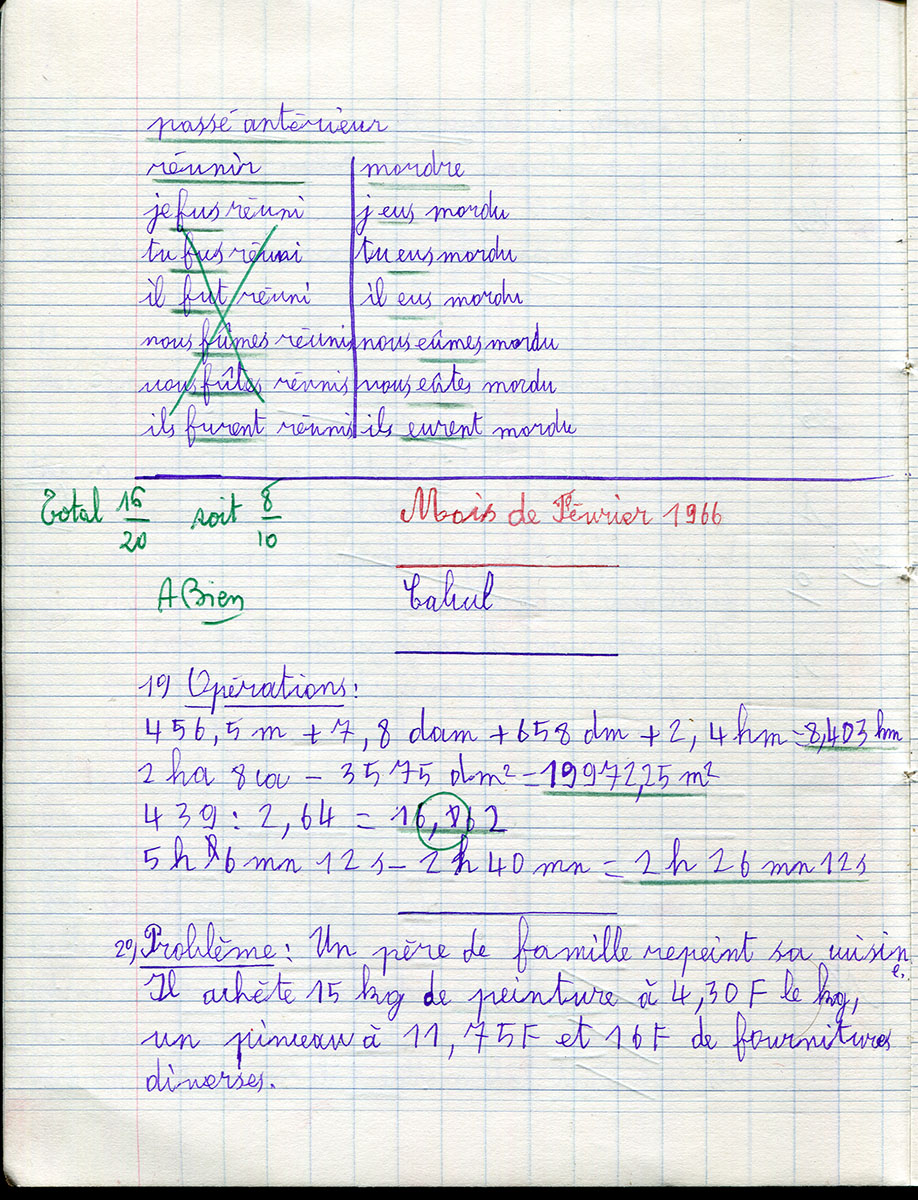 passé antérieur
réunir mordre
je fus réuni j eus mordu
tu fus réuni tu eus mordu
il fut réuni il eus mordu
nous fûmes réunis nous eûmes mordu
vous fûtes réunis vous eûtes mordu
ils furent réunis ils eurent mordu
Total 16/20 soit 8/10 Mois de Février 1966
A Bien Calcul
1º) Opérations :
456,5 m + 7,8 dam + 658 dm + 2,4 hm = 8,403 hm
2 ha 8 ca - 3575 dm² = 19972,25 m²
439 : 2,64 = 16, 62
5 h 6 mn 12 s - 2 h 40 mn = 2 h 26 mn 12 s
2º) Problème : Un père de famille repeint sa cuisine.
Il achète 15 kg de peinture à 4,30 F le kg,
un pinceau à 11,75 F et 16 F de fournitures
diverses.